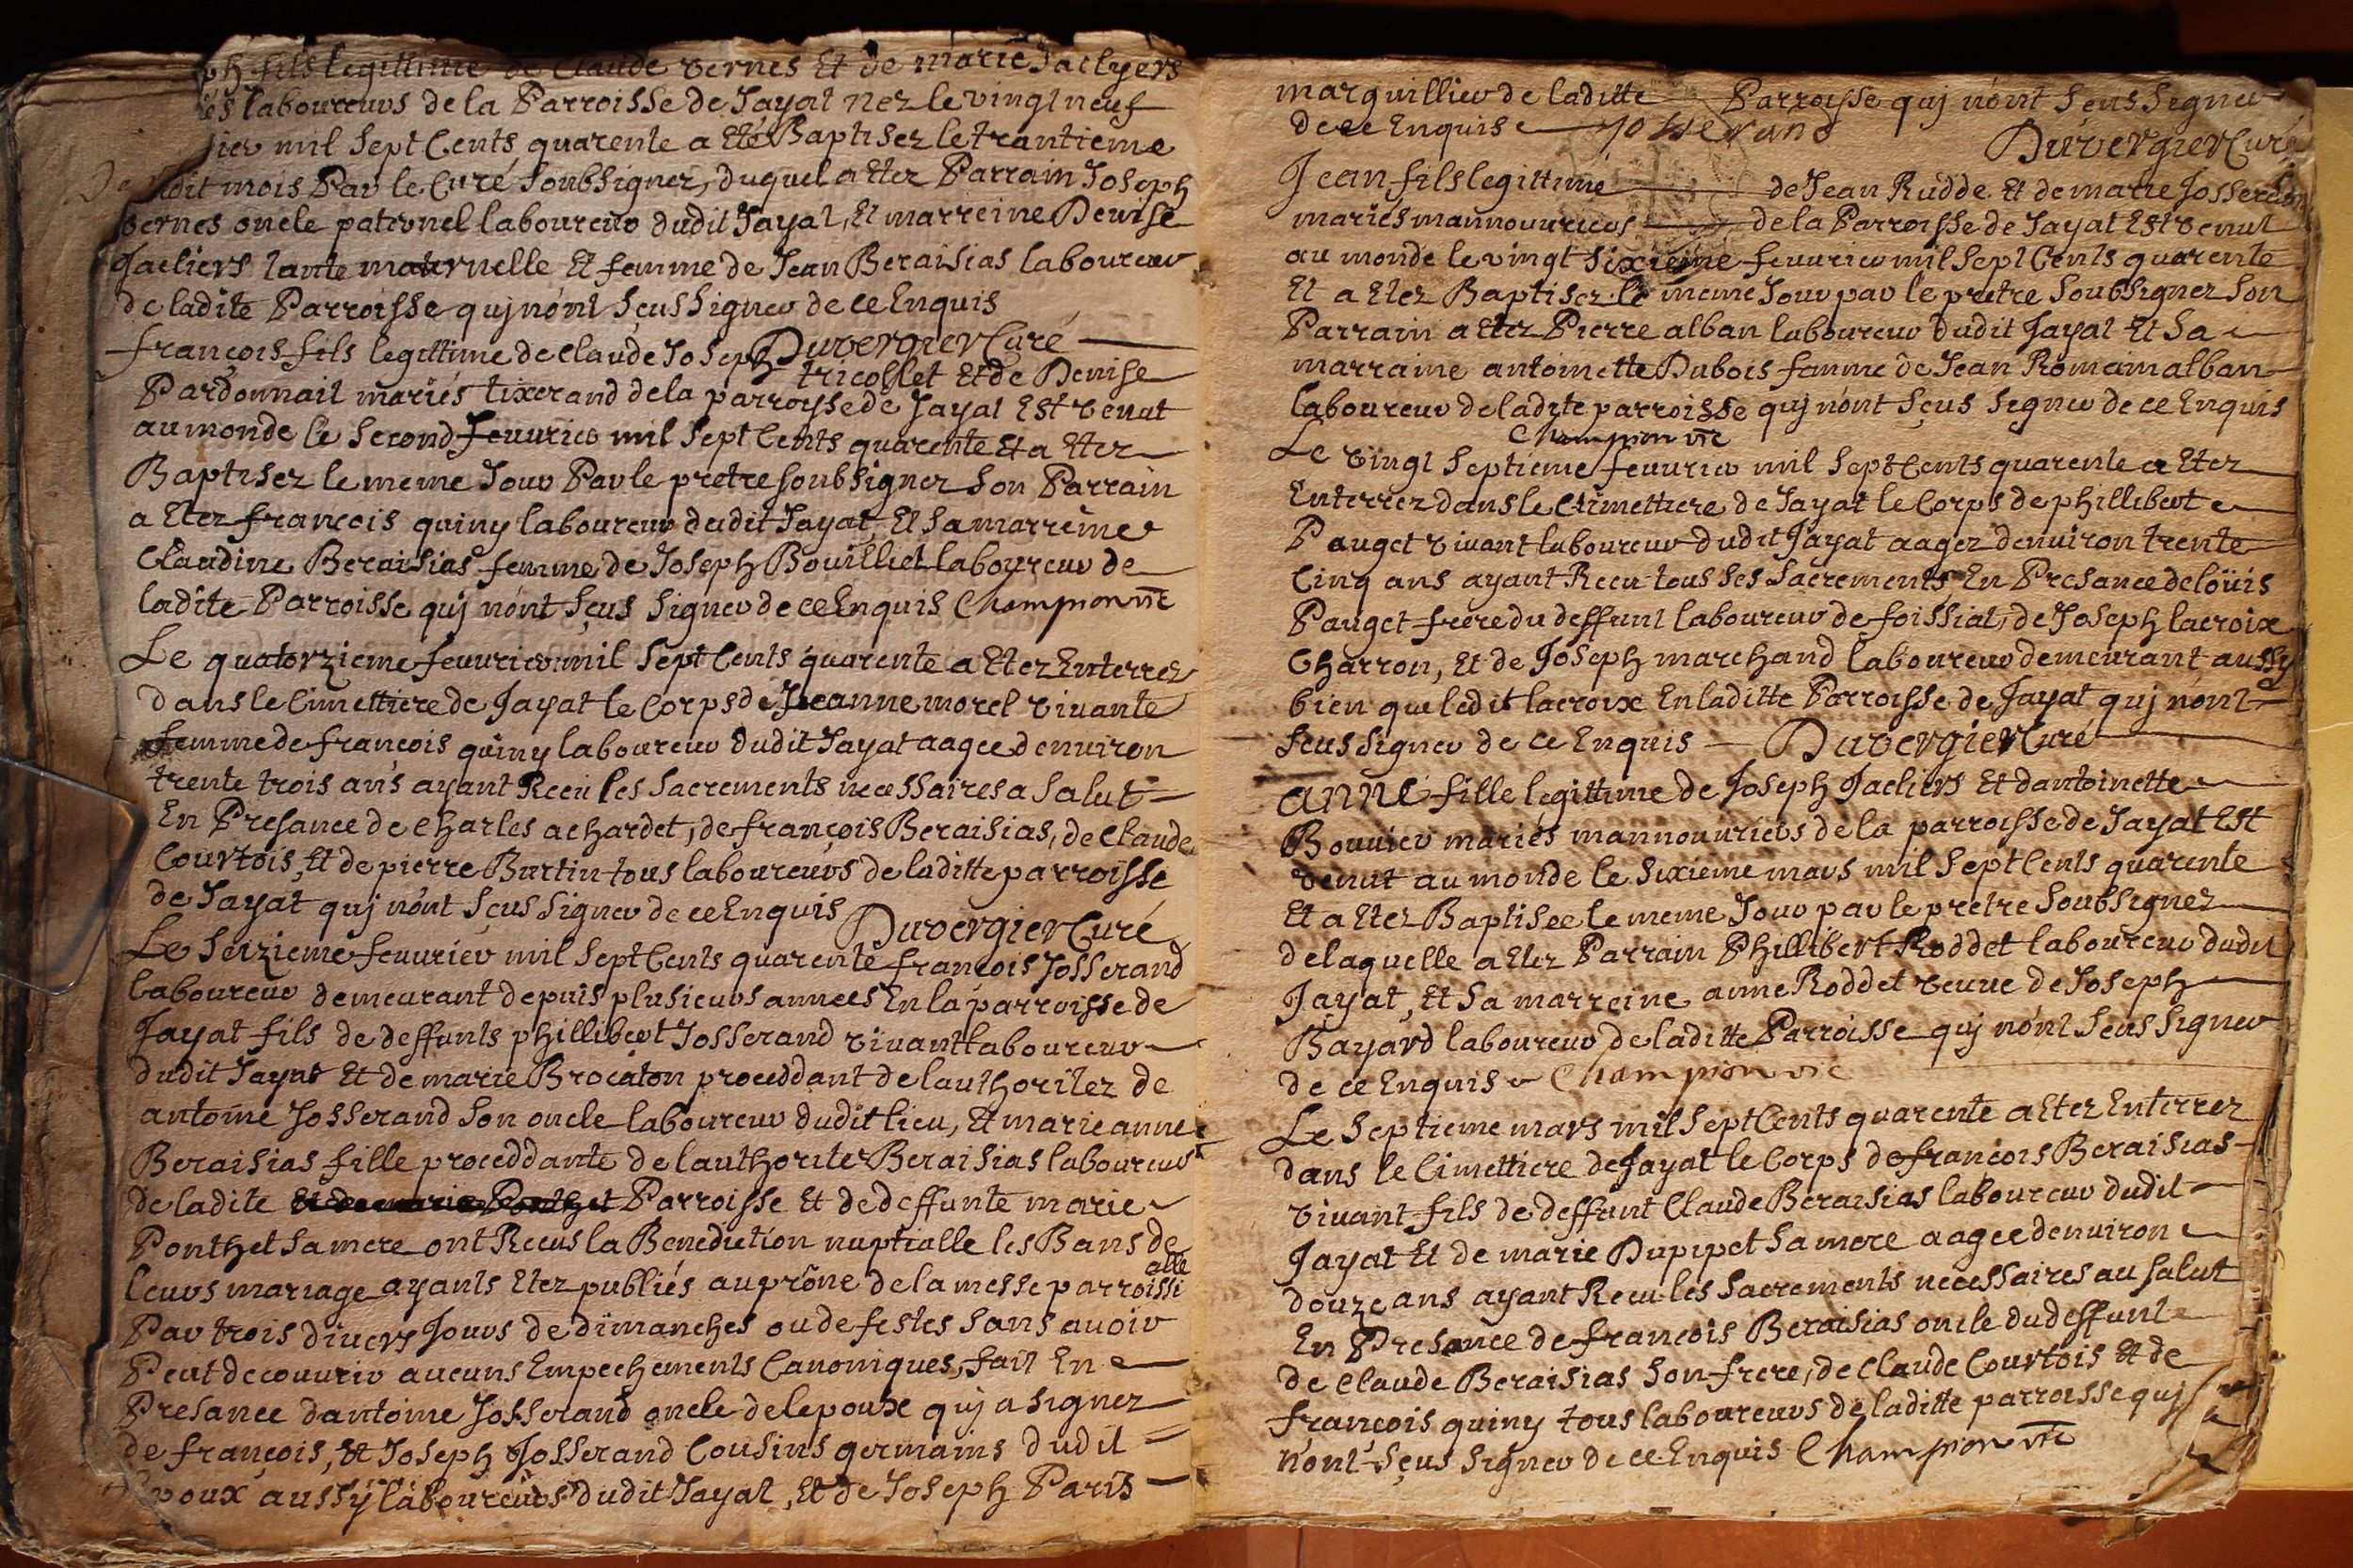 ph fils legittime de Claude vernes Et de marie Jaclyers
iés laboureurs de la Parroisse de Jayat nez le vingt neuf
ier mil sept Cents quarente a Eté Baptisez le trantieme
dudit mois Par le Curé soubsignez, duquel a Etez Parrain Joseph
vernes oncle paternel laboureur dudit Jayat, Et marreine Denise
Jacliers tante maternelle Et femme de Jean Beraisias laboureur
de ladite Parroisse quj nónt sçus signer de ce Enquis
Duvergier Curé
françois fils legittime de Claude Joseph tricollet Et de Denise
Pardonnail mariés tixerand de la parroysse de Jayat Est venut
au monde le second feuurier mil sept Cents quarente Et a Etez
Baptisez le meme Jour Par le pretre soubsignez son Parrain
a Etez françois quiny laboureur dudit Jayat, Et sa marreine
Claudine Beraisias femme de Joseph Bouilliet laboureur de
ladite Parroisse quj nónt sçus signer de ce Enquis Champion vic
Le quatorzieme feuurier mil sept Cents quarente a Etez Enterrez
dans le Cimettiere de Jayat le Corps de Jeanne morel vivante
femme de françois quiny laboureur dudit Jayat aagee denuiron
trente trois ans ayant Receu les sacrements necessaires a salut
En Presance de Charles achardet, de françois Beraisias, de Claude
Courtois, Et de pierre Burtin tous laboureurs de laditte parroisse
de Jayat quj nónt sçus signer de ce Enquis Duvergier Curé
Le seizieme feuurier mil sept Cents quarente françois Josserand
laboureur demeurant depuis plusieurs annees En la parroisse de
Jayat fils de deffunts phillibert Josserand vivant laboureur
dudit Jayat Et de marie Brocaton proceddant de lauthoritez de
antoine Josserand son oncle laboureur dudit lieu, Et marie anne
Beraisias fille proceddante de lauthoritez Beraisias laboureur
de ladite Et de marie Ponthet Parroisse Et de deffunte marie
Ponthet sa mere ont Receus la Benediction nuptialle les Bans de
leurs mariage ayants Etez publiés au prône de la messe parroissialle
Par trois divers Jours de dimanches ou de festes sans auoir
Peut decouurir aucuns Empechements Canoniques, fait En
Presance dantoine Josserand oncle de lepoux quj a signez
de françois, Et Joseph Josserand Cousins germains dudit
Epoux aussy laboureurs dudit Jayat, Et de Joseph Paris
marguillier de laditte Parroisse quj nónt sçus signer
de ce Enquis Josserand
Duvergier Curé
Jean fils legittime de Jean Rudde Et de marie Josserand
mariés mannouuriers de la Parroisse de Jayat Est venut
au monde le vingt sixieme feuurier mil sept Cents quarente
Et a Etez Baptisez le meme Jour par le pretre soubsignez son
Parrain a Etez Pierre alban laboureur dudit Jayat Et sa
marraine antoinette Dubois femme de Jean Romain alban
laboureur de ladite parroisse quj nónt sçus signer de ce Enquis
Champion vic
Le vingt septieme feuurier mil sept Cents quarente a Etez
Enterrez dans le Cimettiere de Jayat le Corps de phillibert
Pauget vivant laboureur dudit Jayat aagez denuiron trente
Cinq ans ayant Receu tous ses sacrements, En Presance de loüis
Pauget frere du deffunt laboureur de foissiat, de Joseph lacroix
Charron, Et de Joseph marchand laboureur demeurant aussy
bien que ledit lacroix En laditte Parroisse de Jayat quj nónt
sçus signer de ce Enquis Duvergier Curé
anne fille legittime de Joseph Jacliers Et dantoinette
Bouuier mariés mannouuriers de la parroisse de Jayat Est
venut au monde le sixieme mars mil sept Cents quarente
Et a Etez Baptisee le meme Jour par le pretre soubsignez
de laquelle a Etez Parrain Phillibert Roddet laboureur dudit
Jayat, Et sa marreine anne Roddet veuue de Joseph
Bayard laboureur de laditte Parroisse quj nónt sçus signer
de ce Enquis Champion vic
Le septieme mars mil sept Cents quarente a Etez Enterrez
dans le Cimettiere de Jayat le Corps de françois Beraisias
vivant fils de deffunt Claude Beraisias laboureur dudit
Jayat Et de marie Dupipet sa mere aagee denuiron
douze ans ayant Receu les sacrements necessaires au salut
En Presance de françois Beraisias oncle du deffunt
de Claude Beraisias son frere, de Claude Courtois Et de
françois quiny tous laboureurs de laditte parroisse quj
nónt sçus signer de ce Enquis Champion vic